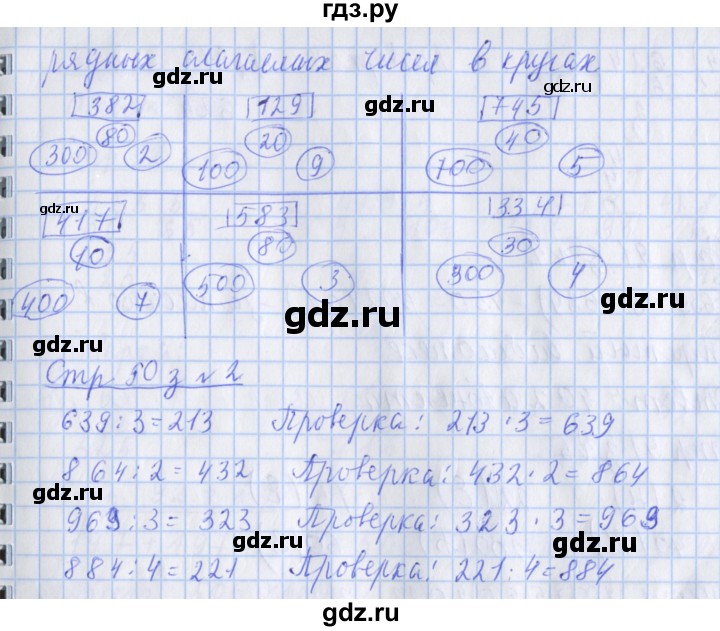 гдз.ру
рядных слагаемых чисел в кругах
gdz.ru gdz.ru
gdz.ru
382 129 745
80 20 40
300 2 100 9 700 5
gdz.ru gdz.ru gdz.ru
417 583 334
gdz.ru gdz.ru
10 80 30
400 7 500 3 300 4
gdz.ru
gdz.ru
gdz.ru
Стр 50 з № 2
639:3=213 Проверка: 213·3=639
gdz.ru gdz.ru
864:2=432 Проверка: 432·2=864
gdz.ru gdz.ru
969:3=323 Проверка: 323·3=969
gdz.ru gdz.ru
884:4=221 Проверка: 221·4=884
gdz.ru